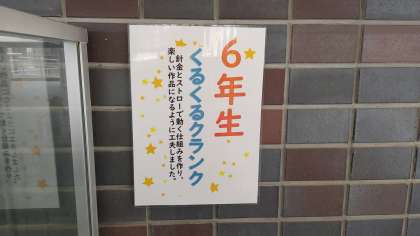 6年生
くるくるクランク
針金とストローで動く仕組みを作り、
楽しい作品になるように工夫しました。